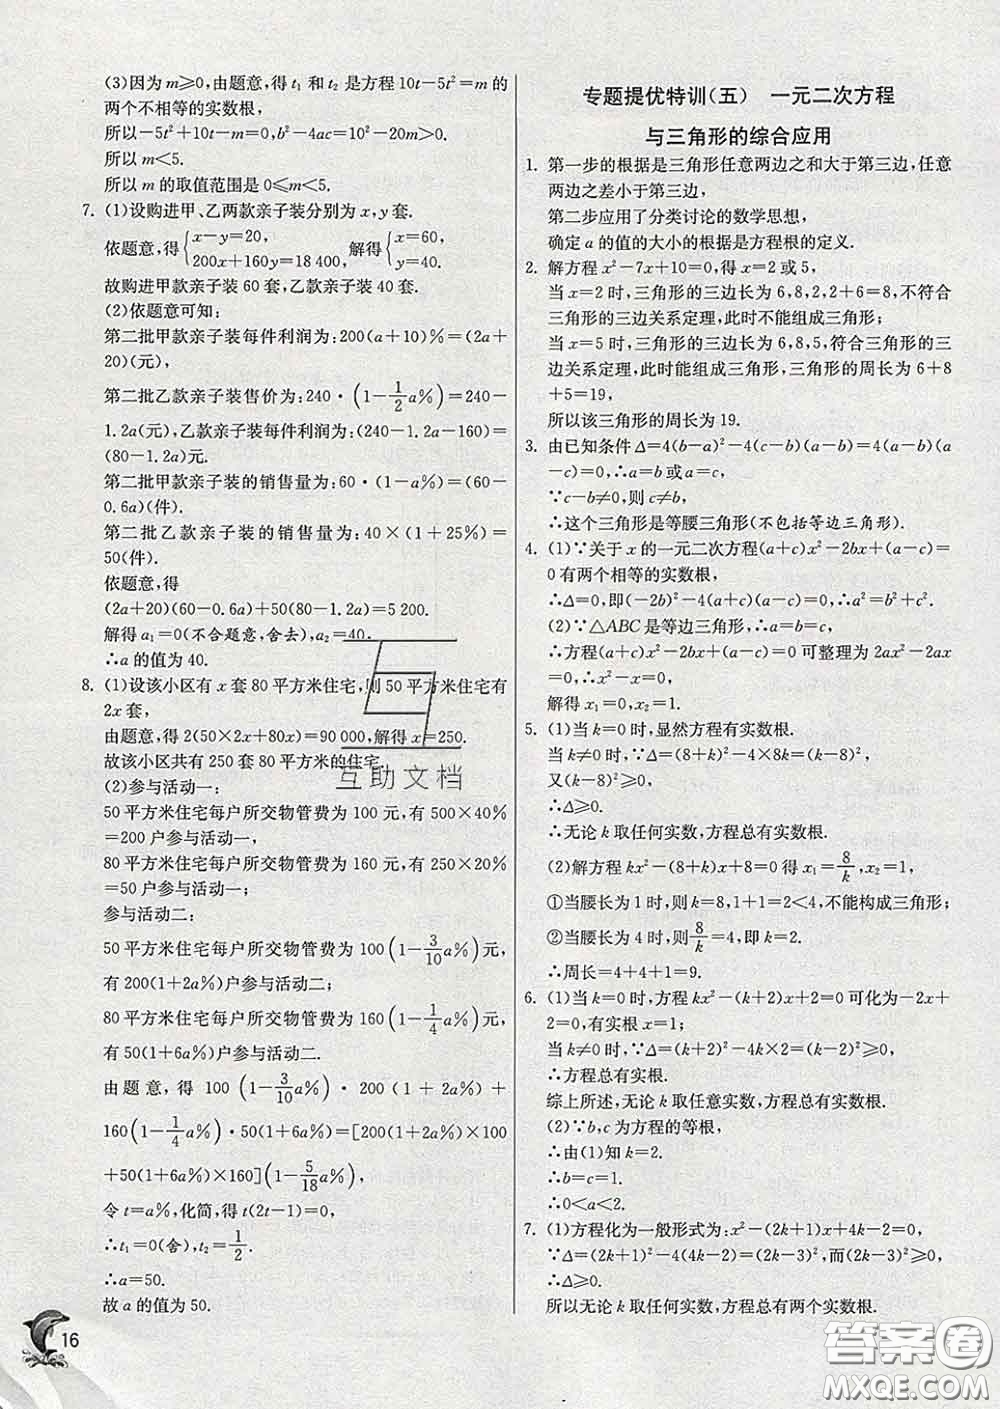 (3)因为 m≥0,由题意,得 t₁ 和 t₂ 是方程 10t-5t²=m 的
两个不相等的实数根,
所以-5t²+10t-m=0,b²-4ac=10²-20m>0.
所以 m<5.
所以 m 的取值范围是 0≤m<5.
7. (1)设购进甲、乙两款亲子装分别为 x,y 套.
依题意,得{x-y=20, 200x+160y=18 400, 解得{x=60, y=40.
故购进甲款亲子装 60 套,乙款亲子装 40 套.
(2)依题意可知:
第二批甲款亲子装每件利润为:200(a+10)%=(2a+
20)(元),
第二批乙款亲子装售价为:240·(1-1/2a%)=240-
1.2a(元),乙款亲子装每件利润为:(240-1.2a-160)=
(80-1.2a)元.
第二批甲款亲子装的销售量为:60·(1-a%)=(60-
0.6a)(件).
第二批乙款亲子装的销售量为:40×(1+25%)=
50(件).
依题意,得
(2a+20)(60-0.6a)+50(80-1.2a)=5 200.
解得 a₁=0(不合题意,舍去),a₂=40.
∴a 的值为 40.
8. (1)设该小区有 x 套 80 平方米住宅,则 50 平方米住宅有
2x 套,
由题意,得 2(50×2x+80x)=90 000,解得 x=250.
故该小区共有 250 套 80 平方米的住宅.
互助文档
(2)参与活动一:
50 平方米住宅每户所交物管费为 100 元,有 500×40%
=200 户参与活动一,
80 平方米住宅每户所交物管费为 160 元,有 250×20%
=50 户参与活动一;
参与活动二:
50 平方米住宅每户所交物管费为 100(1-3/10a%)元,
有 200(1+2a%)户参与活动二;
80 平方米住宅每户所交物管费为 160(1-1/4a%)元,
有 50(1+6a%)户参与活动二.
由题意,得 100(1-3/10a%)·200(1+2a%)+
160(1-1/4a%)·50(1+6a%)=[200(1+2a%)×100
+50(1+6a%)×160](1-5/18a%),
令 t=a%,化简,得 t(2t-1)=0,
∴t₁=0(舍),t₂=1/2.
∴a=50.
故 a 的值为 50.
16
专题提优特训(五) 一元二次方程
与三角形的综合应用
1. 第一步的根据是三角形任意两边之和大于第三边,任意
两边之差小于第三边,
第二步应用了分类讨论的数学思想,
确定 a 的值的大小的根据是方程根的定义.
2. 解方程 x²-7x+10=0,得 x=2 或 5,
当 x=2 时,三角形的三边长为 6,8,2,2+6=8,不符合
三角形的三边关系定理,此时不能组成三角形;
当 x=5 时,三角形的三边长为 6,8,5,符合三角形的三
边关系定理,此时能组成三角形,三角形的周长为 6+8
+5=19,
所以该三角形的周长为 19.
3. 由已知条件 Δ=4(b-a)²-4(c-b)(a-b)=4(a-b)(a
-c)=0,∴a=b 或 a=c,
∵c-b≠0,则 c≠b,
∴这个三角形是等腰三角形(不包括等边三角形).
4. (1)∵关于 x 的一元二次方程(a+c)x²-2bx+(a-c)=
0 有两个相等的实数根,
∴Δ=0,即(-2b)²-4(a+c)(a-c)=0,∴a²=b²+c².
(2)∵△ABC 是等边三角形,∴a=b=c,
∴方程(a+c)x²-2bx+(a-c)=0 可整理为 2ax²-2ax
=0,∴x²-x=0,
解得 x₁=0,x₂=1.
5. (1)当 k=0 时,显然方程有实数根.
当 k≠0 时,∵Δ=(8+k)²-4×8k=(k-8)²,
又(k-8)²≥0,
∴Δ≥0.
∴无论 k 取任何实数,方程总有实数根.
(2)解方程 kx²-(8+k)x+8=0 得 x₁=8/k,x₂=1,
①当腰长为 1 时,则 k=8,1+1=2<4,不能构成三角形;
②当腰长为 4 时,则8/k=4,即 k=2.
∴周长=4+4+1=9.
6. (1)当 k=0 时,方程 kx²-(k+2)x+2=0 可化为-2x+
2=0,有实根 x=1;
当 k≠0 时,∵Δ=(k+2)²-4k×2=(k-2)²≥0,
∴方程总有实根.
综上所述,无论 k 取任意实数,方程总有实根.
(2)∵b,c 为方程的等根,
∴由(1)知 k=2.
∴b=c=1.
∴0<a<2.
7. (1)方程化为一般形式为:x²-(2k+1)x+4k-2=0,
∵Δ=(2k+1)²-4(4k-2)=(2k-3)²,而(2k-3)²≥0,
∴Δ≥0.
所以无论 k 取任何实数,方程总有两个实数根.
答案圈
MXQE.COM